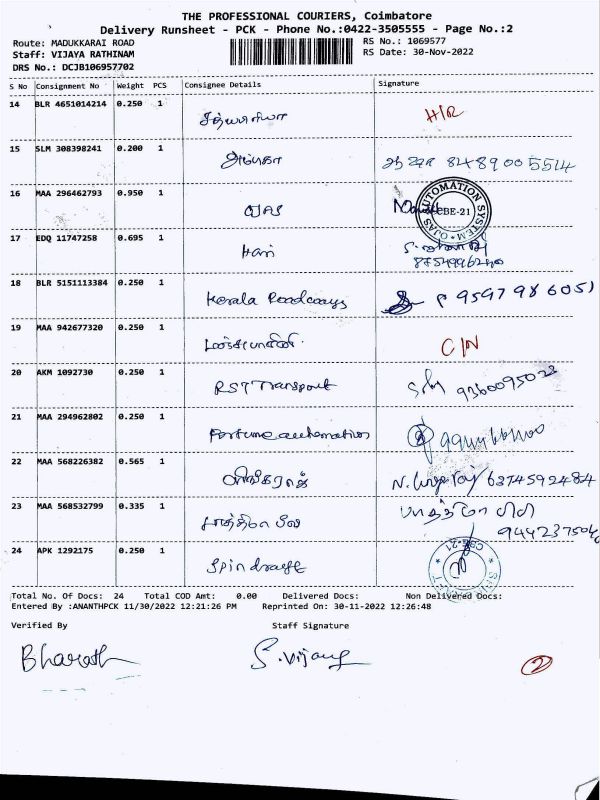 THE PROFESSIONAL COURIERS, Coimbatore
Delivery Runsheet - PCK - Phone No.:0422-3505555 - Page No.:2
Route: MADUKKARAI ROAD
RS No.: 1069577
Staff: VIJAYA RATHINAM
RS Date: 30-Nov-2022
DRS No.: DCJB106957702
S No Consignment No Weight PCS Consignee Details Signature
14 BLR 4651014214 0.250 1 H/R
15 SLM 308398241 0.200 1 அம்பிகா 8489005514
16 MAA 296462793 0.950 1 OJAS OJAS AUTOMATION SYSTEM CBE-21
17 EDQ 11747258 0.695 1 Hari
18 BLR 5151113384 0.250 1 Kerala Roadways 9597986051
19 MAA 942677320 0.250 1 C/N
20 AKM 1092730 0.250 1 RST Transport 9360095023
21 MAA 294962802 0.250 1 Fortune automation
22 MAA 568226382 0.565 1 6374592484
23 MAA 568532799 0.335 1 பாத்திமா பீவி
24 APK 1292175 0.250 1 Spindraft CBE-21
Total No. Of Docs: 24 Total COD Amt: 0.00 Delivered Docs: Non Delivered Docs:
Entered By :ANANTHPCK 11/30/2022 12:21:26 PM Reprinted On: 30-11-2022 12:26:48
Verified By Staff Signature
Bharath S. Vijaya
2